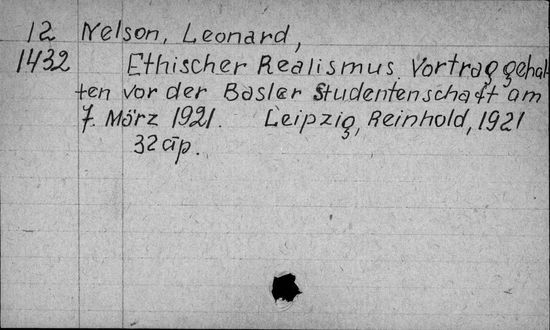 12 Nelson, Leonard,
1432 Ethischer Realismus Vortrag gehal
ten vor der Basler Studentenschaft am
7. März 1921. Leipzig, Reinhold, 1921
32 āp.